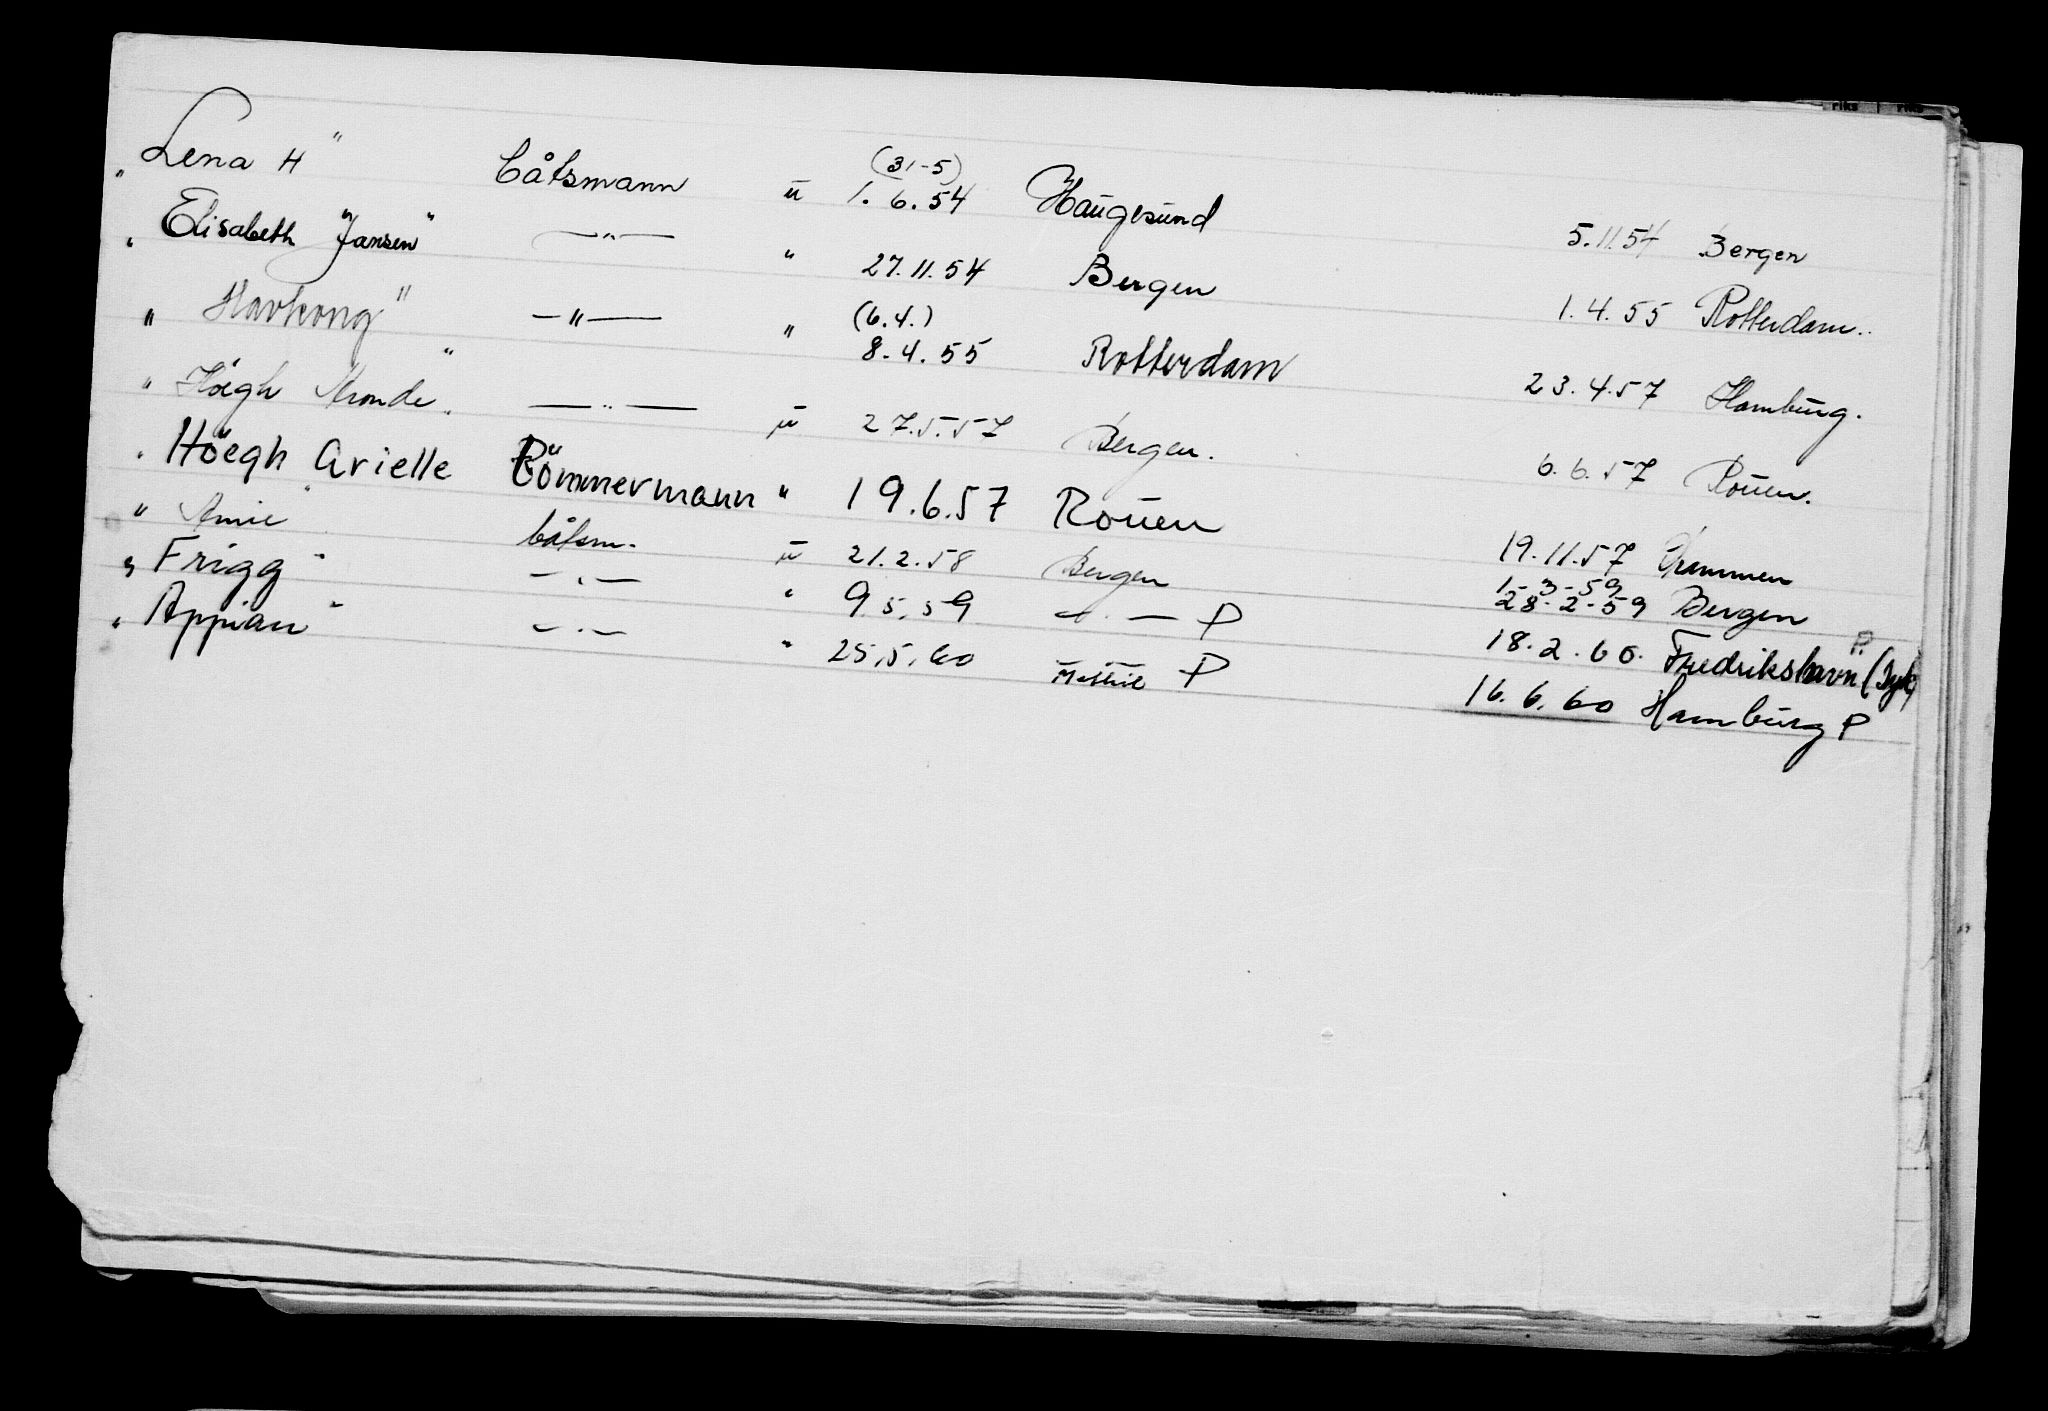 " Lena H " båtsmann u (31-5) 1. 6. 54 Haugesund 5.11.54 Bergen
" Elisabeth "Jansen" — " — " 27. 11. 54 Bergen 1. 4. 55 Rotterdam.
" Havkong" — " — " (6.4.) 8. 4. 55 Rotterdam 23. 4. 57 Hamburg.
" Höegh " — " — u 27.5.57 Bergen. 6. 6. 57 Rouen.
" Höegh Arielle Tömmermann " 19.6.57 Rouen 19.11.57 Drammen
" båtsm. u 21.2.58 Bergen 1-3-59 28-2-59 Bergen
" Frigg " — " — " 9.5.59 — " — P 18.2.60. Fredrikshavn P.
" Appian " — " — " 25.5.60 P 16. 6. 60 Hamburg P
riks riks